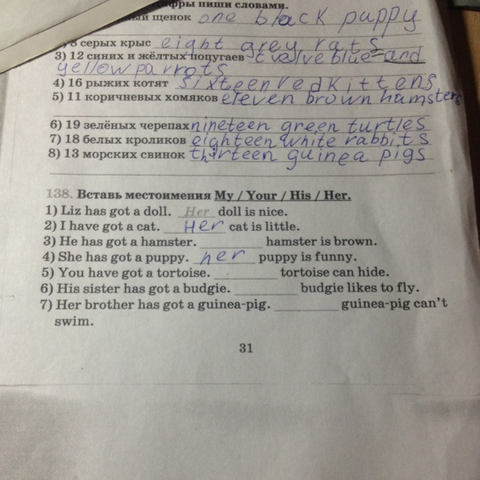 фры пиши словами.
ый щенок one black puppy
8 серых крыс eight grey rats
3) 12 синих и жёлтых попугаев twelve blue and
yellow parrots
4) 16 рыжих котят sixteen red kittens
5) 11 коричневых хомяков eleven brown hamsters
6) 19 зелёных черепах nineteen green turtles
7) 18 белых кроликов eighteen white rabbits
8) 13 морских свинок thirteen guinea pigs
138. Вставь местоимения My / Your / His / Her.
1) Liz has got a doll. Her doll is nice.
2) I have got a cat. Her cat is little.
3) He has got a hamster. ________ hamster is brown.
4) She has got a puppy. her puppy is funny.
5) You have got a tortoise. ________ tortoise can hide.
6) His sister has got a budgie. ________ budgie likes to fly.
7) Her brother has got a guinea-pig. ________ guinea-pig can't
swim.
31